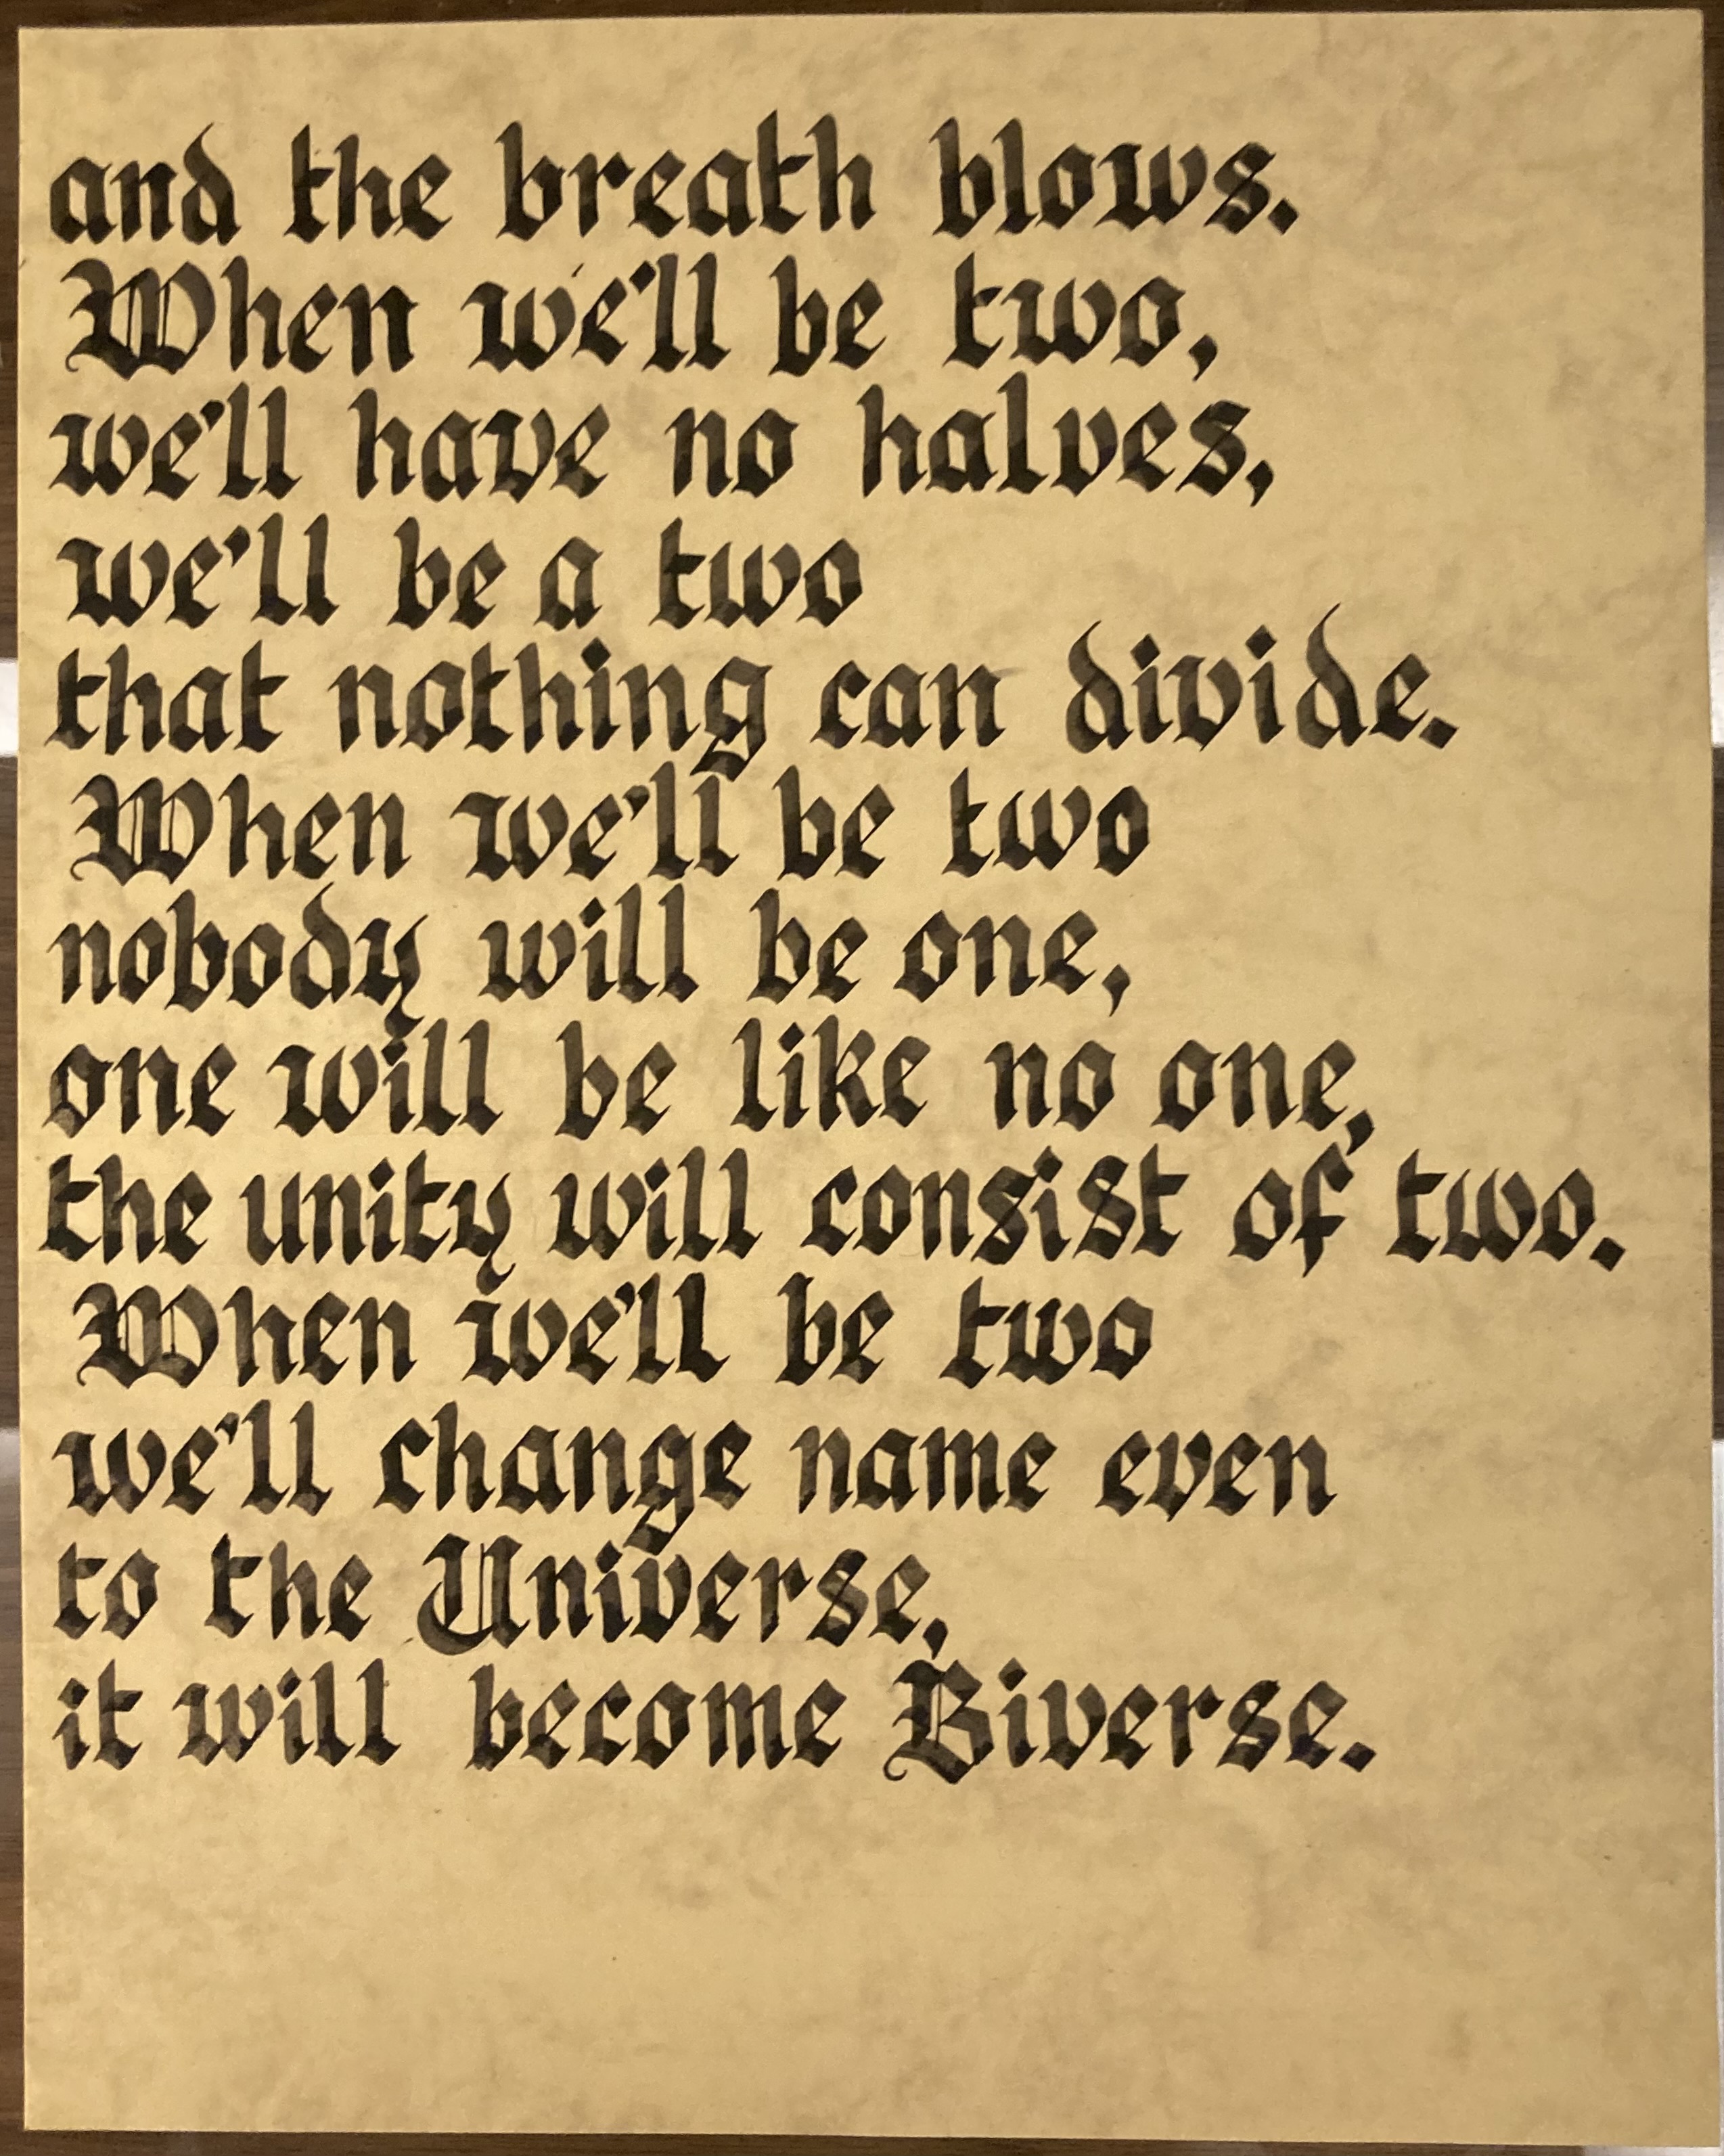 and the breath blows.
When we'll be two,
we'll have no halves,
we'll be a two
that nothing can divide.
When we'll be two
nobody will be one,
one will be like no one,
the unity will consist of two.
When we'll be two
we'll change name even
to the Universe,
it will become Biverse.